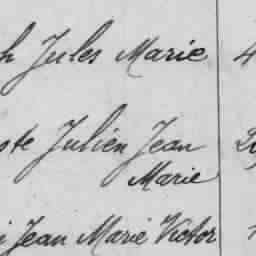 h Jules Marie 4
ste Julien Jean 2
Marie
i Jean Marie Victor